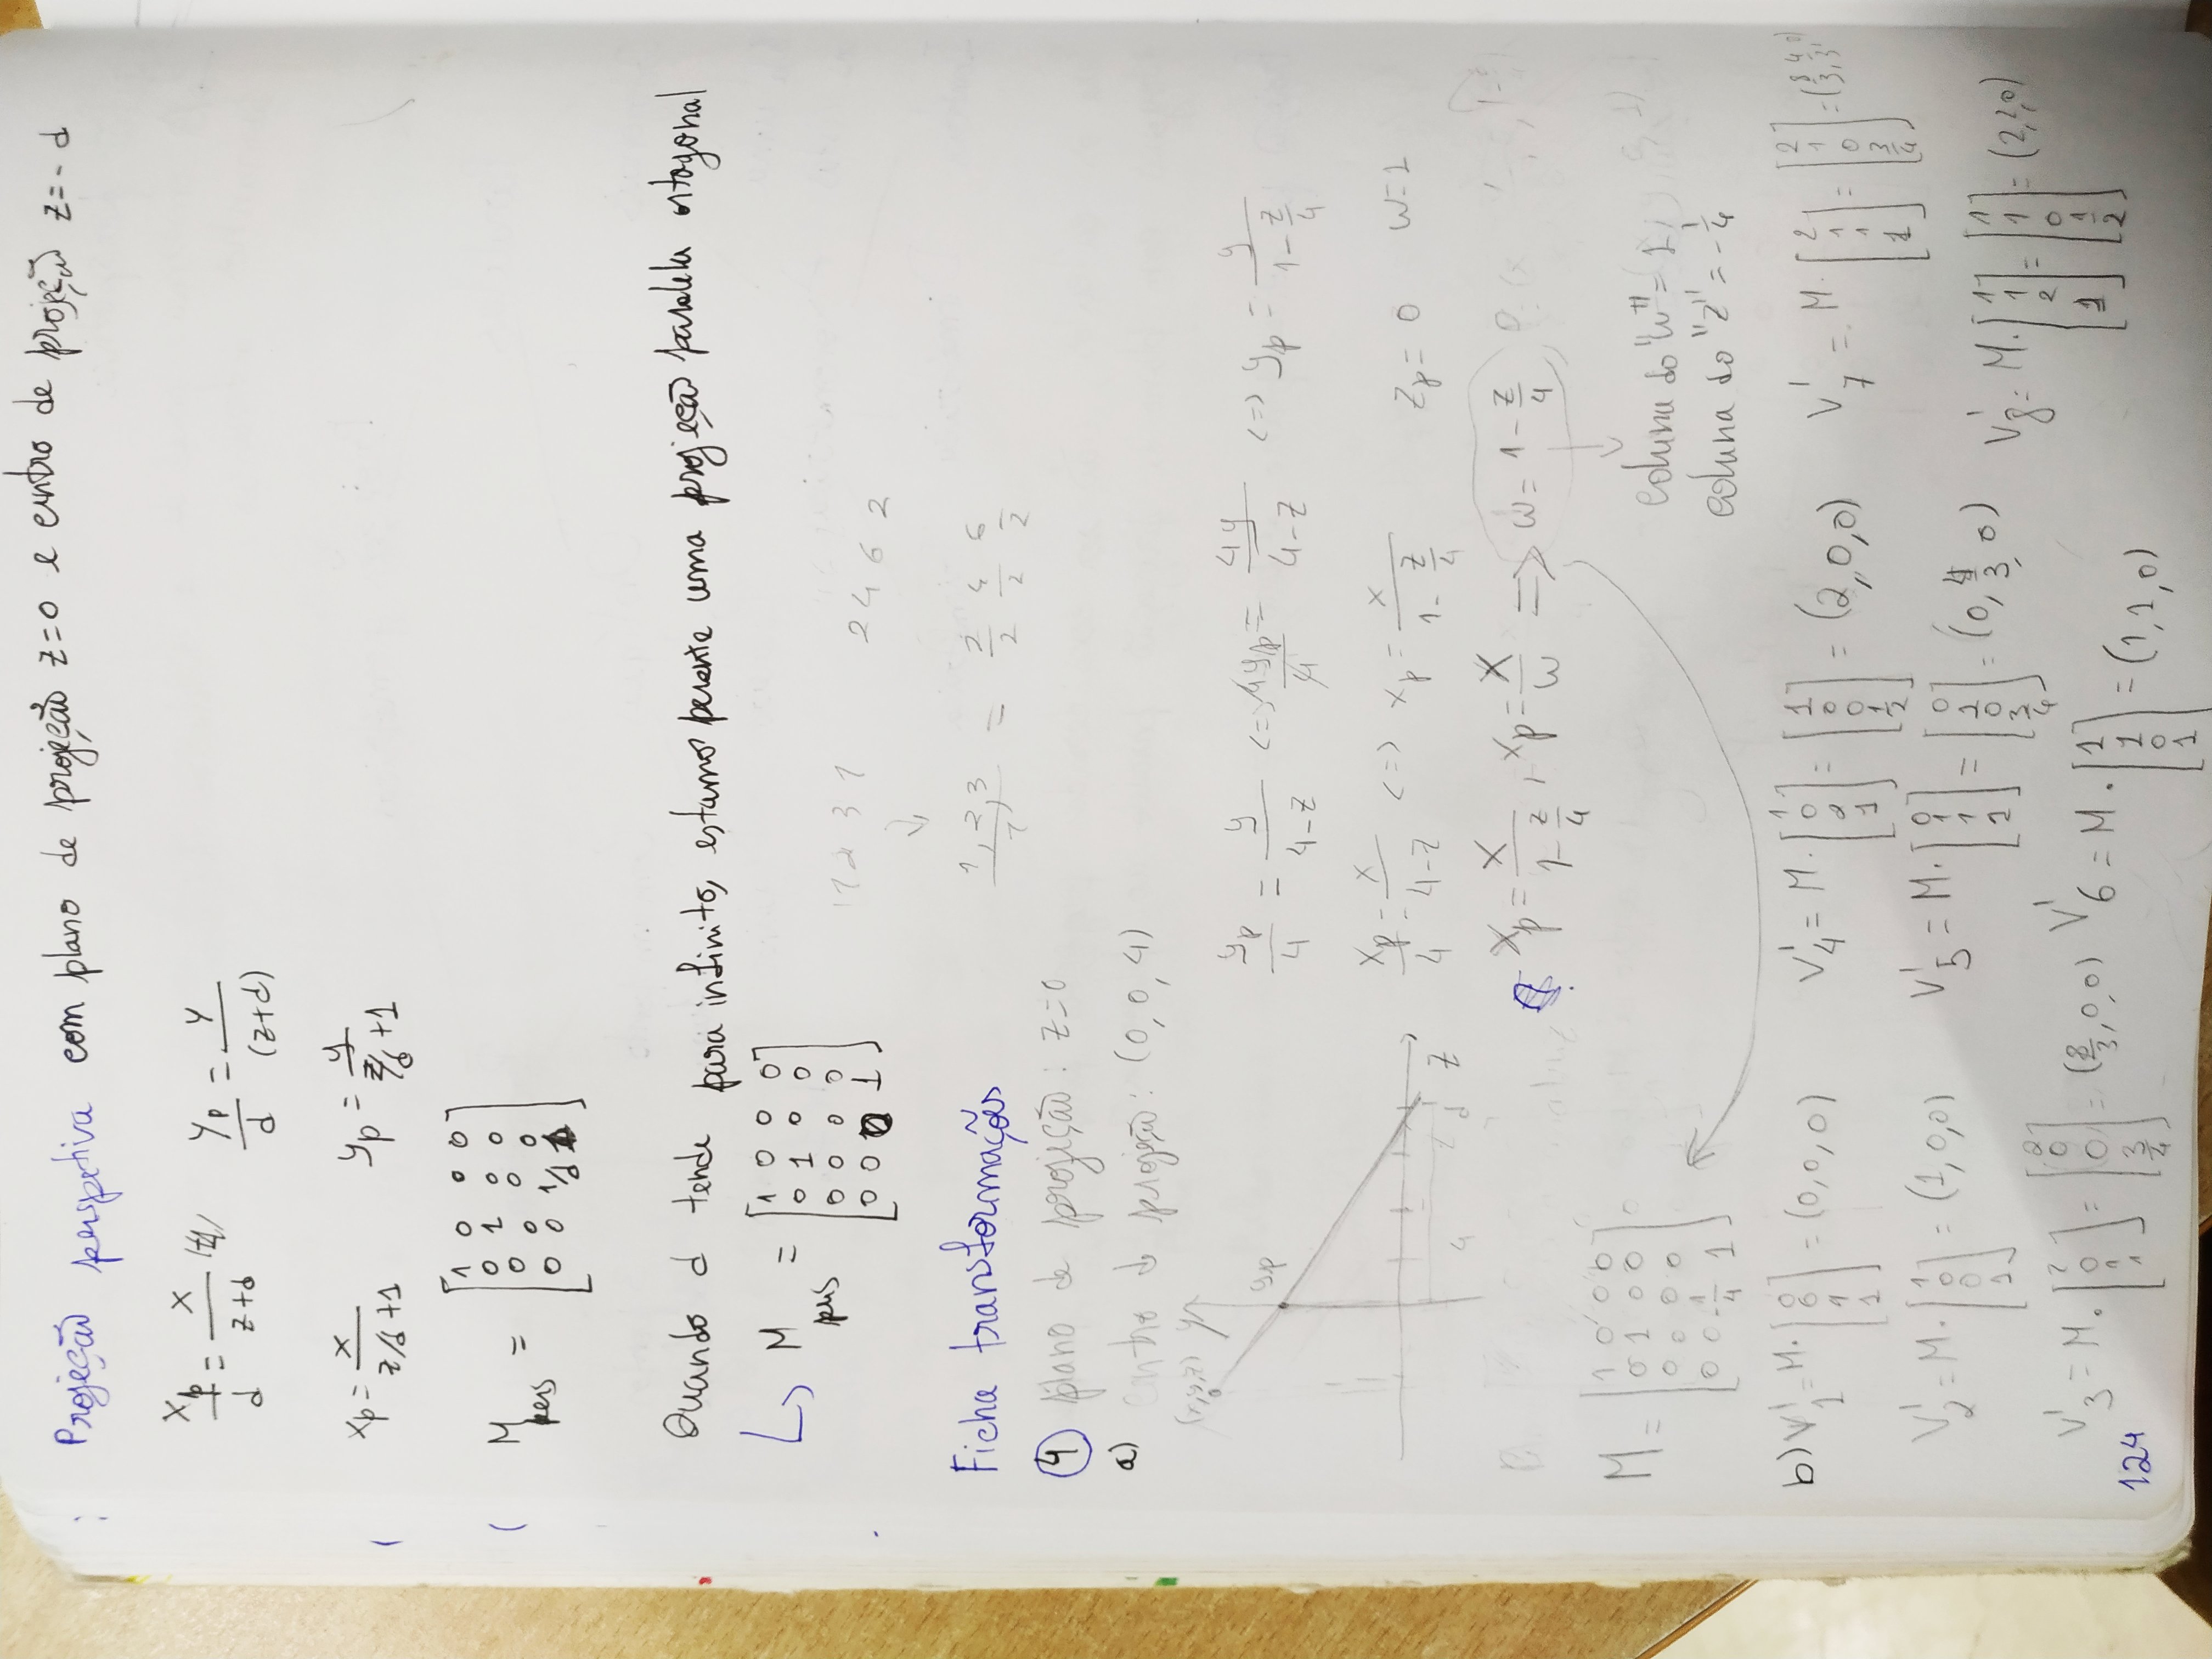 Projeção perspetiva com plano de projeção z=0 e centro de projeção z=-d
x_p/d = x/(z+d)   y_p/d = y/(z+d)
x_p = x/(z/d +1)   y_p = y/(z/d +1)
M_pers = [1 0 0 0
0 1 0 0
0 0 0 0
0 0 1/d 1]
Quando d tende para infinito, estamos perante uma projeção paralela ortogonal
↳ M_pers = [1 0 0 0
0 1 0 0
0 0 0 0
0 0 0 1]
1 2 3 1   2 4 6 2
↓
1,2,3/1 = 2/2 4/2 6/2
Ficha transformações
4 plano de projeção: z=0
a) centro de projeção: (0,0,4)
(x,y,z) y
y_p
4 d z
y_p/4 = y/(4-z) <=> 4y_p/4 = 4y/(4-z) <=> y_p = y/(1-z/4)
x_p/4 = x/(4-z) <=> x_p = x/(1-z/4)   z_p = 0   w=1
x_p = x/(1-z/4), x_p = x/w => w = 1-z/4
M = [1 0 0 0
0 1 0 0
0 0 0 0
0 0 -1/4 1]
coluna do "w" = 1
coluna do "z" = -1/4
b) V'1 = M.[0 0 1 1] = (0,0,0)
V'2 = M.[1 0 0 1] = (1,0,0)
V'3 = M.[2 0 1 1] = [2 0 0 3/4] = (8/3,0,0)
V'4 = M.[1 0 2 1] = [1 0 0 1/2] = (2,0,0)
V'5 = M.[0 1 1 1] = [0 1 0 3/4] = (0,4/3,0)
V'6 = M.[1 1 0 1] = (1,1,0)
V'7 = M.[2 1 1 1] = [2 1 0 3/4] = (8/3,4/3,0)
V'8 = M.[1 1 2 1] = [1 1 0 1/2] = (2,2,0)
124